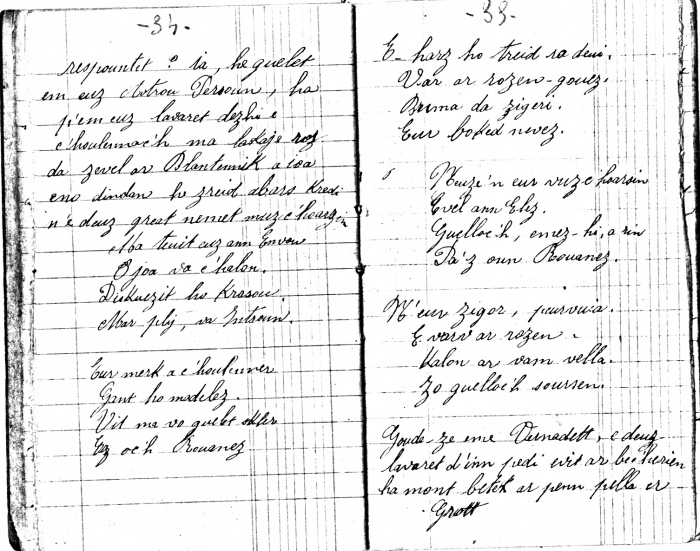 -34-
respountit ? ia, he guelet
em euz Aotrou Person, ha
p'em euz lavaret dezhi e
c'houlennac'h ma lakaje roz
da zevel ar Blantennik a ioa
eno dindan he zreid abars Kredi
n'e deuz great nemet muzc'hoarzin
Ma teuit euz ann Envou
O joa va c'halon.
Diskuezit ho Krasou.
Mar plij, va Introun.
Eur merk a c'houlenner
Gant ho madelez.
Vit ma vo guelet skler
Ez oc'h Rouanez
-33-
E-harz ho treid ra deui.
Var ar rozen-gouez.
Bruma da zigeri.
Eur boked nevez.
Neuze'n eur vuzc'hoarsin
Evel ann Elez.
Guelloc'h, emez-hi, a rin
Da'z oun Rouanez.
N'eur zigor, peurvuia.
E varv ar rozen.
Kalon ar vam vella.
Zo guelloc'h soursen.
Gouda-ze eme Vernadett, e deuz
lavaret d'inn pedi evit ar bec'herien
ha mont betek ar penn pella er
Grott